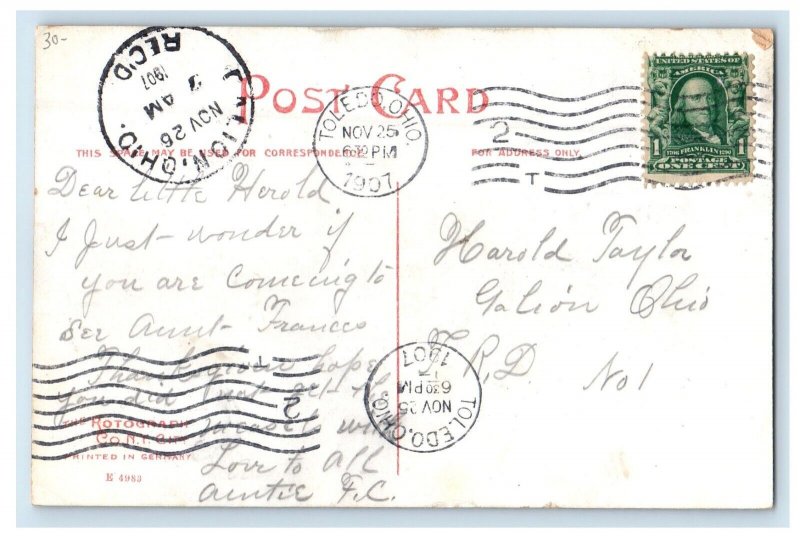 30-
GALION, OHIO.
NOV 26
AM
1907
REC'D
POST CARD
TOLEDO, OHIO.
NOV 25
630 PM
1907
2
T
UNITED STATES OF
AMERICA
1 1706 FRANKLIN 1790 1
POSTAGE
ONE CENT
THIS SPACE MAY BE USED FOR CORRESPONDENCE
FOR ADDRESS ONLY.
Dear little Herold
I Just - wonder if
you are Comeing to
see Aunt - Frances
Thanksgiven hope
you did not get the
measels with
Love to All
Auntie F.C.
Harold Taylor
Galion Ohio
R.D. No 1
TOLEDO, OHIO.
NOV 25
630 PM
1907
T
2
THE ROTOGRAPH
CO. N.Y. CITY
PRINTED IN GERMANY
E 4983